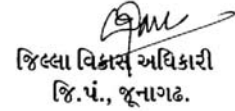 જિલ્લા વિકાસ અધિકારી
જિ.પં., જૂનાગઢ.